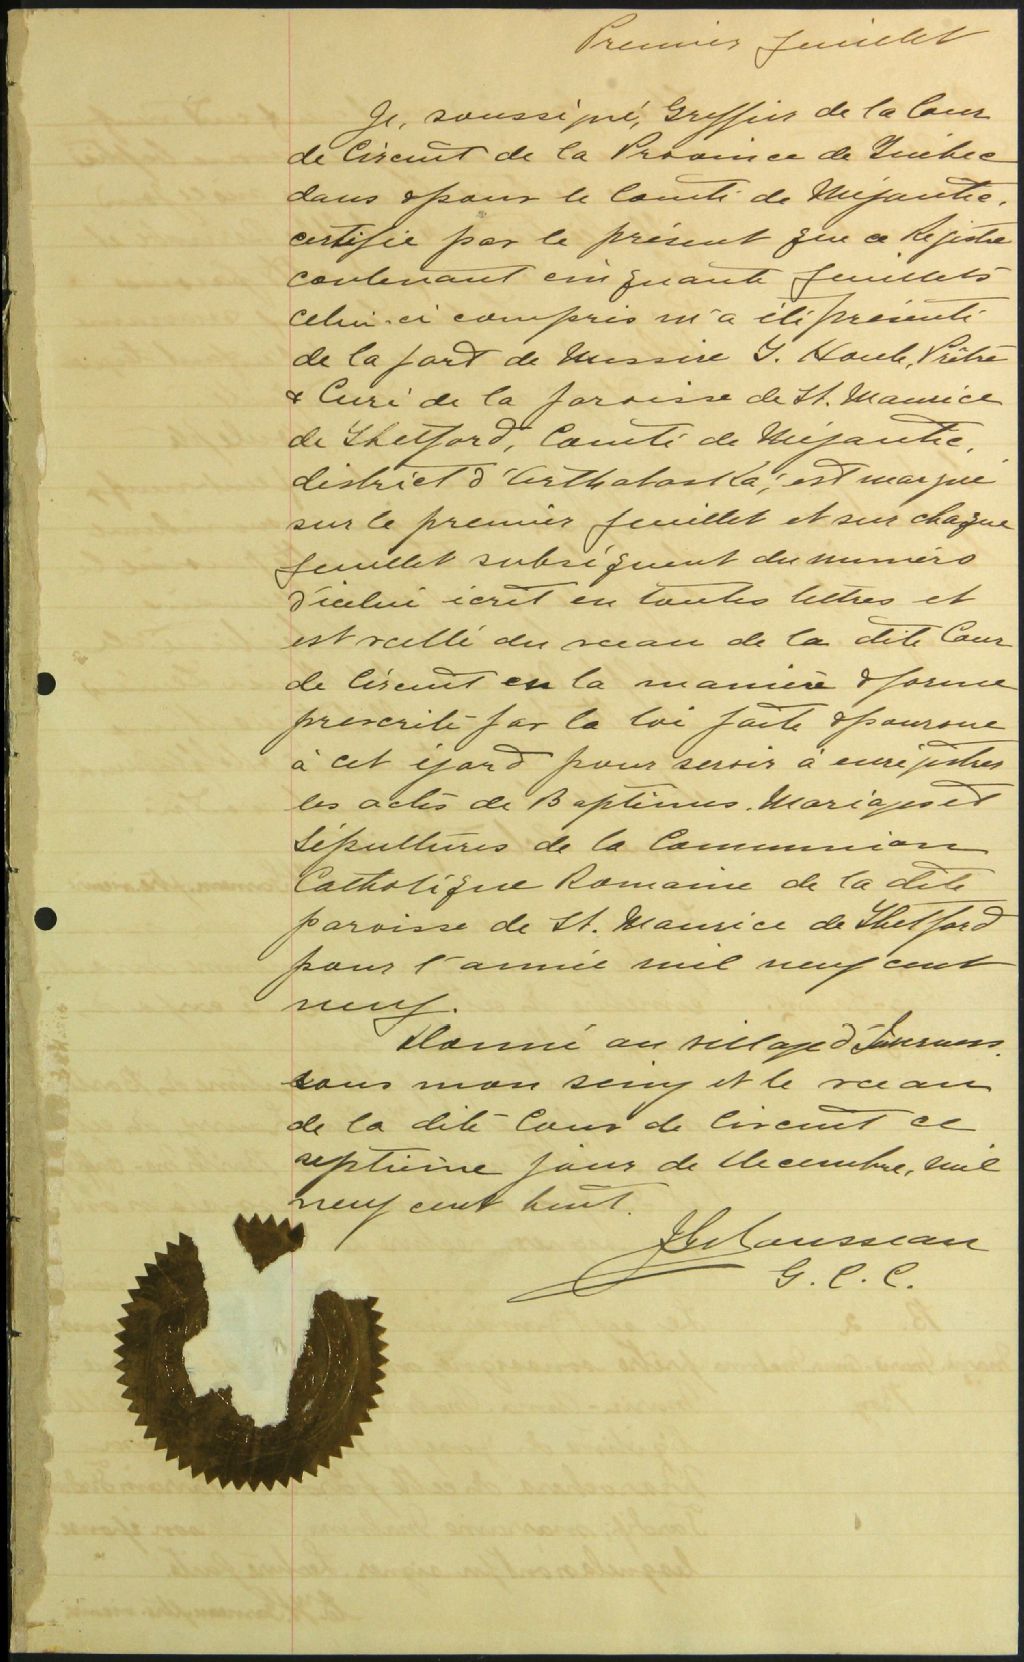 Premier feuillet
Je, soussigné, Greffier de la Cour
de Circuit de la Province de Québec
dans & pour le Comté de Mégantic,
certifie par le présent que ce Registre
contenant cinquante feuillets
celui-ci compris m'a été présenté
de la part de Messire J. Houle, Prêtre
& Curé de la paroisse de St. Maurice
de Thetford, Comté de Mégantic,
district d'Arthabaska, est marqué
sur le premier feuillet et sur chaque
feuillet subséquent du numéro
d'icelui écrit en toutes lettres et
est scellé du sceau de la dite Cour
de Circuit en la manière & forme
prescrite par la loi faite & pourvue
à cet égard pour servir à enregistrer
les actes de Baptêmes, Mariages et
Sépultures de la Communion
Catholique Romaine de la dite
paroisse de St. Maurice de Thetford
pour l'année mil neuf cent
neuf.
Donné au village d'Inverness,
sous mon seing et le sceau
de la dite Cour de Circuit ce
septième jour de Decembre, mil
neuf cent huit.
Rousseau
G. C. C.